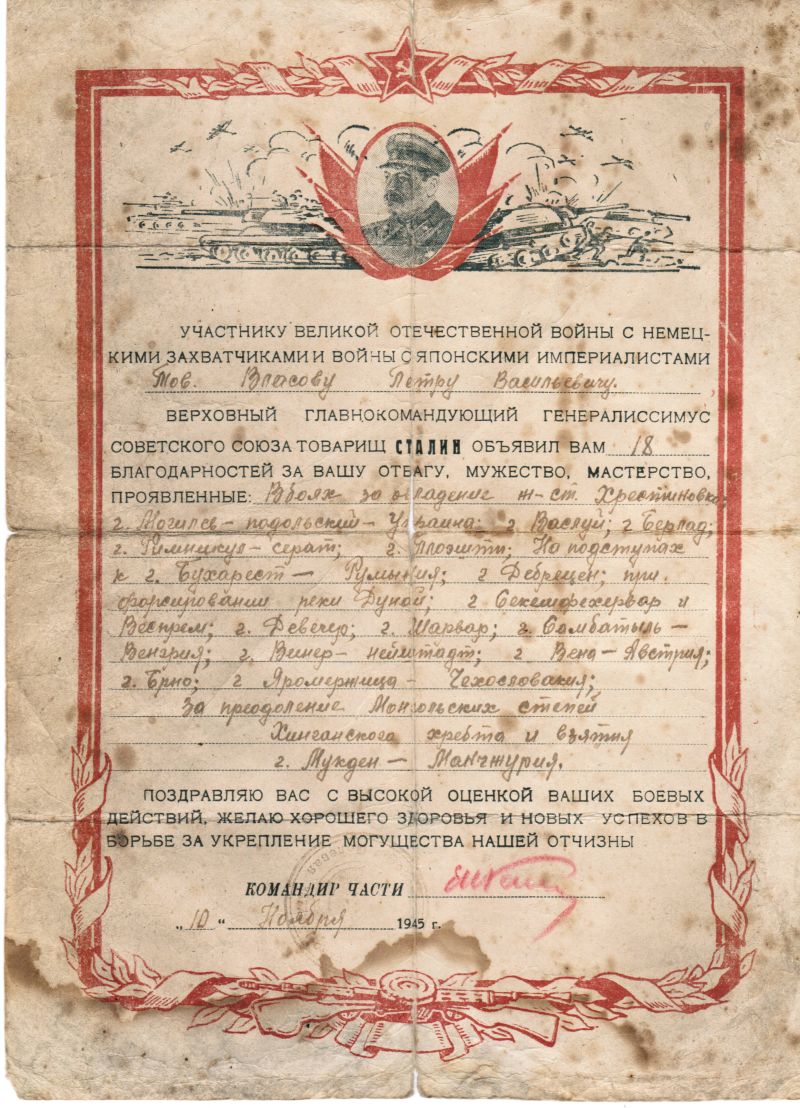 УЧАСТНИКУ ВЕЛИКОЙ ОТЕЧЕСТВЕННОЙ ВОЙНЫ С НЕМЕЦ-
КИМИ ЗАХВАТЧИКАМИ И ВОЙНЫ С ЯПОНСКИМИ ИМПЕРИАЛИСТАМИ
Тов. Власову Петру Васильевичу.
ВЕРХОВНЫЙ ГЛАВНОКОМАНДУЮЩИЙ ГЕНЕРАЛИССИМУС
СОВЕТСКОГО СОЮЗА ТОВАРИЩ СТАЛИН ОБЪЯВИЛ ВАМ 18
БЛАГОДАРНОСТЕЙ ЗА ВАШУ ОТВАГУ, МУЖЕСТВО, МАСТЕРСТВО,
ПРОЯВЛЕННЫЕ: В боях за овладение ж-ст. Хрестиновка;
г. Могилев-подольский - Украина; г Васлуй; г Берлад;
г. Римникул-серат; г. Плоэшти; На подступах
к г. Бухарест - Румыния; г Дебрецен; при
форсировании реки Дуной; г Секешфехервар и
Веспрем; г. Девечер; г. Шарвар; г. Сомбатыль -
Венгрия; г. Винер-нейштадт; г Вена - Австрия;
г. Брно; г Яромержица - Чехословакия;
За преодоление Монгольских степей
Хинганского хребта и взятия
г. Мукден - Манчжурия.
ПОЗДРАВЛЯЮ ВАС С ВЫСОКОЙ ОЦЕНКОЙ ВАШИХ БОЕВЫХ
ДЕЙСТВИЙ, ЖЕЛАЮ ХОРОШЕГО ЗДОРОВЬЯ И НОВЫХ УСПЕХОВ В
БОРЬБЕ ЗА УКРЕПЛЕНИЕ МОГУЩЕСТВА НАШЕЙ ОТЧИЗНЫ
КОМАНДИР ЧАСТИ
„10" Ноября 1945 г.